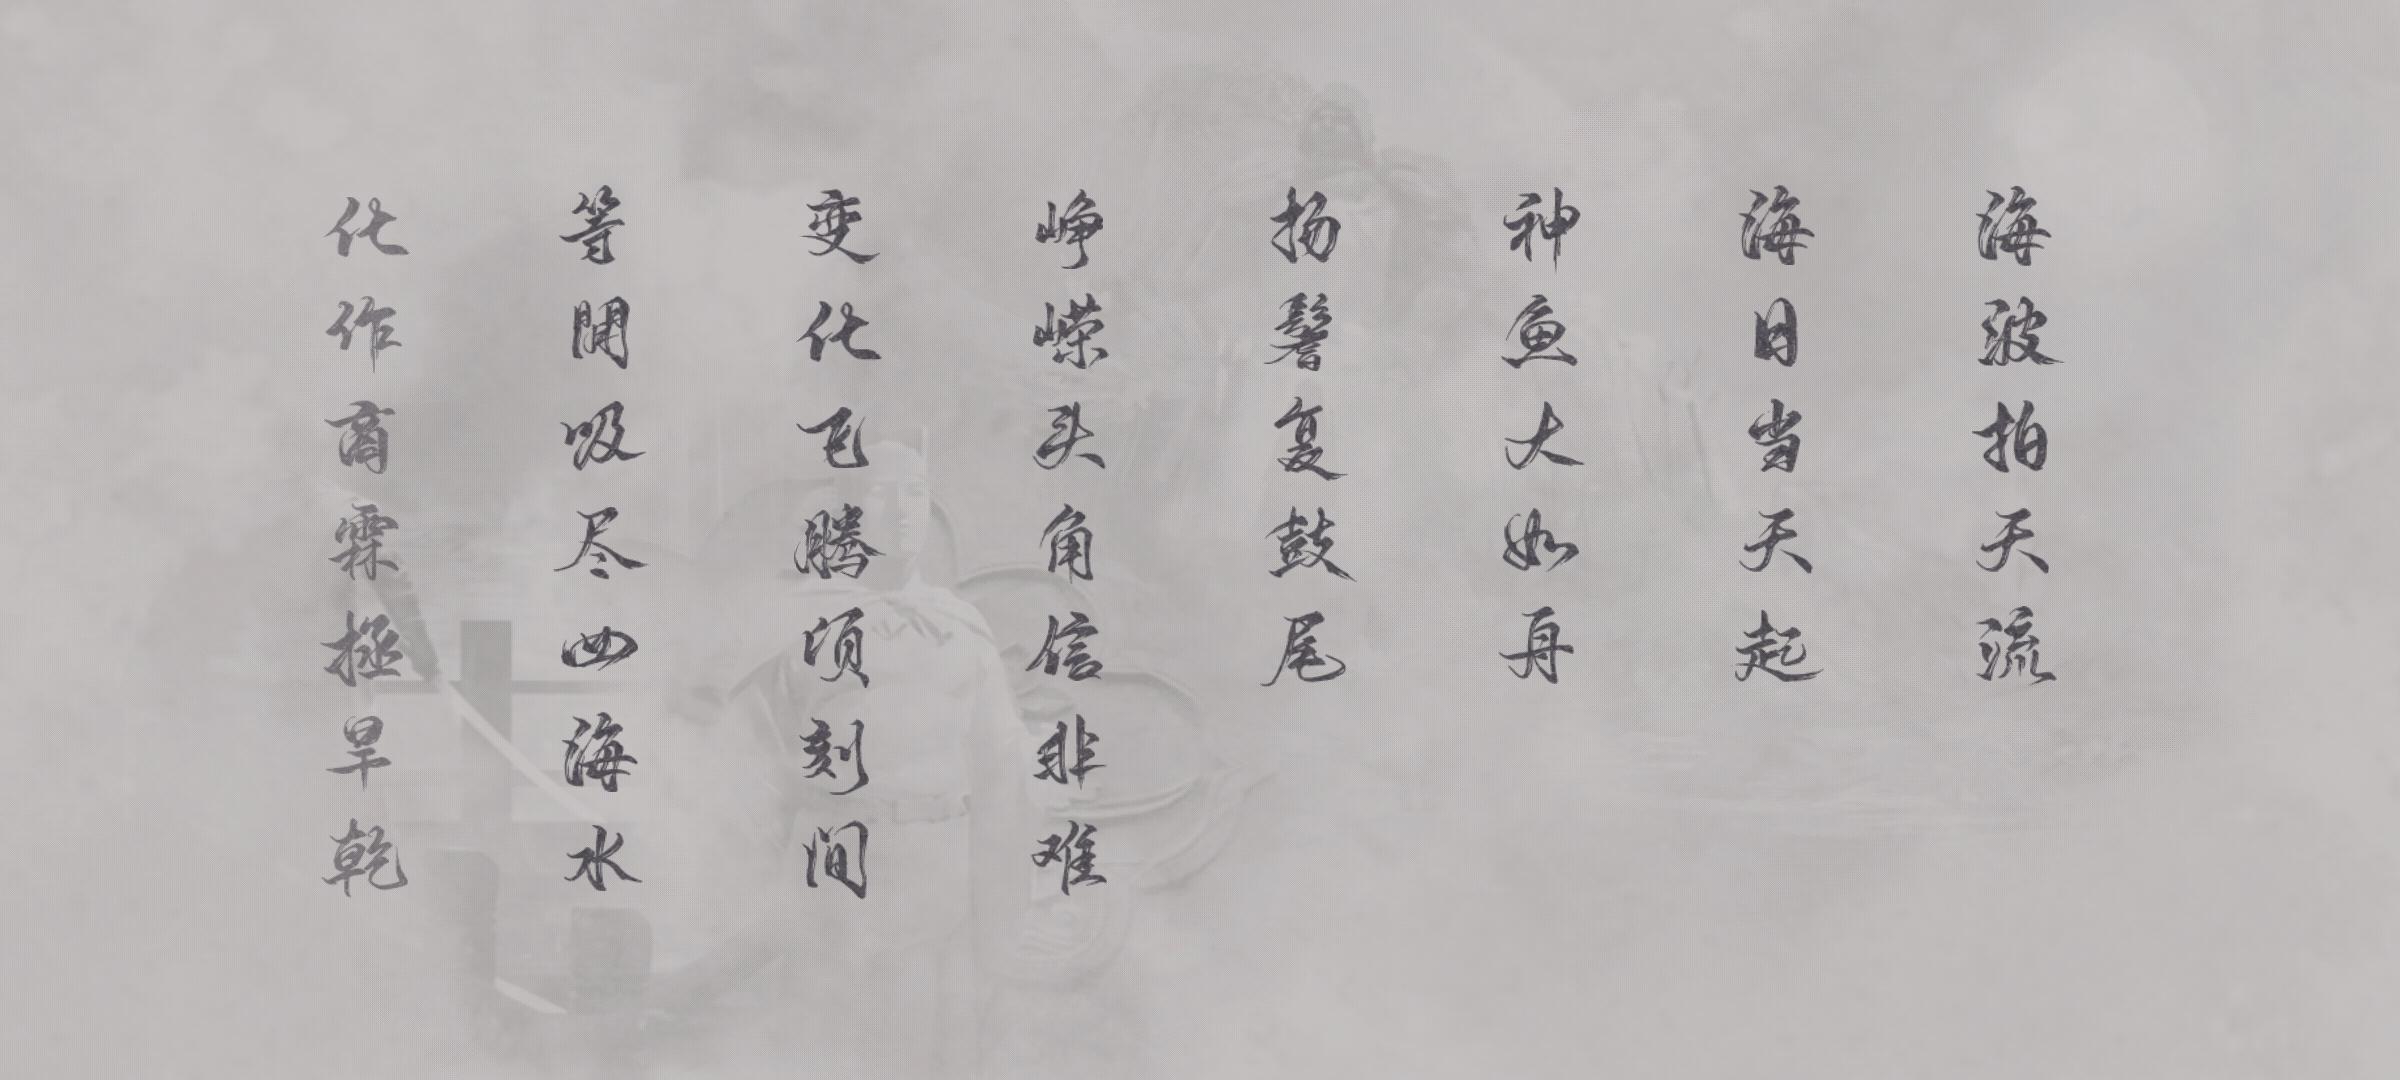 海波拍天流
海日当天起
神鱼大如舟
扬鬐复鼓尾
峥嵘头角信非难
变化飞腾顷刻间
等閒吸尽四海水
化作商霖拯旱乾